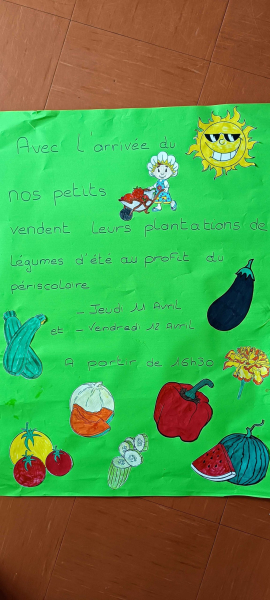 Avec l'arrivée du
nos petits
vendent leurs plantations de
légumes d'été au profit du
périscolaire
- Jeudi 11 Avril
et - Vendredi 12 Avril
A partir de 16h30